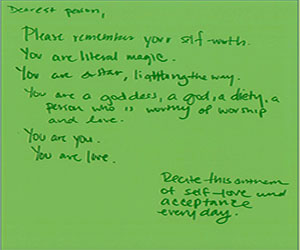 Dearest person,
Please remember your self-worth.
You are literal magic.
You are a star, lighting the way.
You are a goddess, a god, a diety, a
person who is worthy of worship
and love.
You are you.
You are love.
Recite this anthem
of self-love and
acceptance
every day.